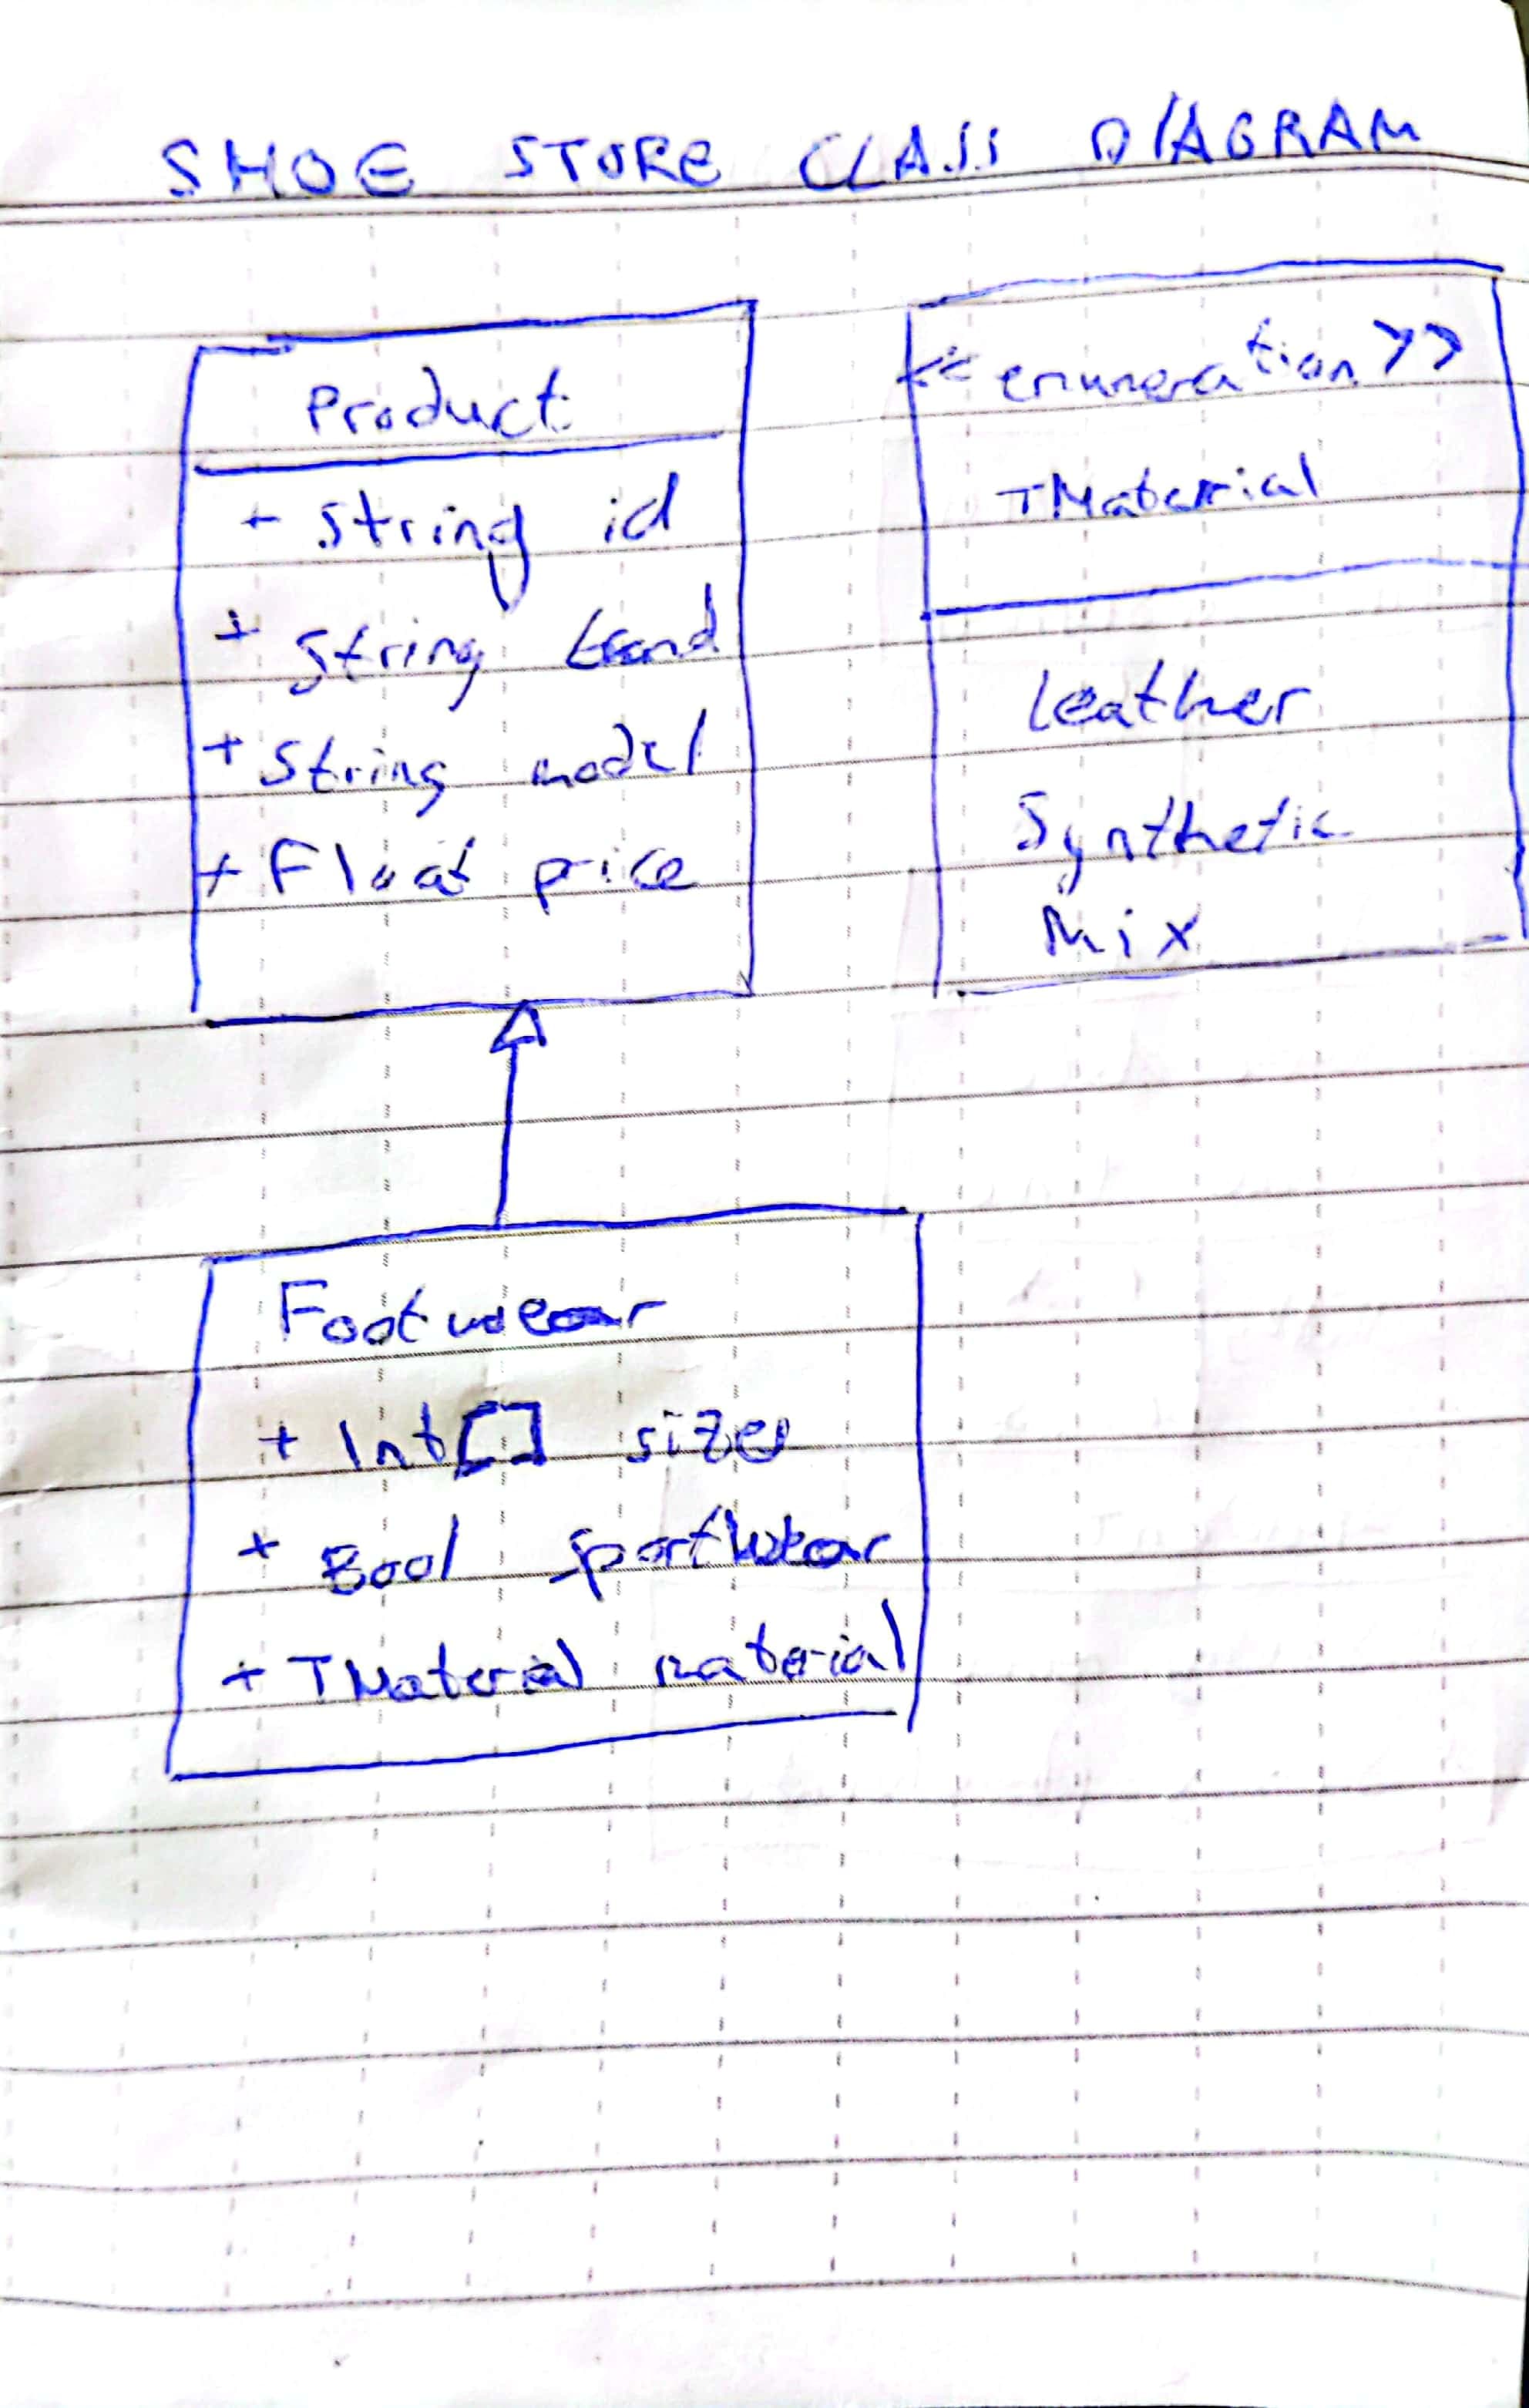 SHOE STORE CLASS DIAGRAM
Product
+ String id
+ String brand
+ String model
+ Float price
<<enumeration>>
TMaterial
Leather
Synthetic
Mix
Footwear
+ Int[] sizes
+ Bool sportwear
+ TMaterial material